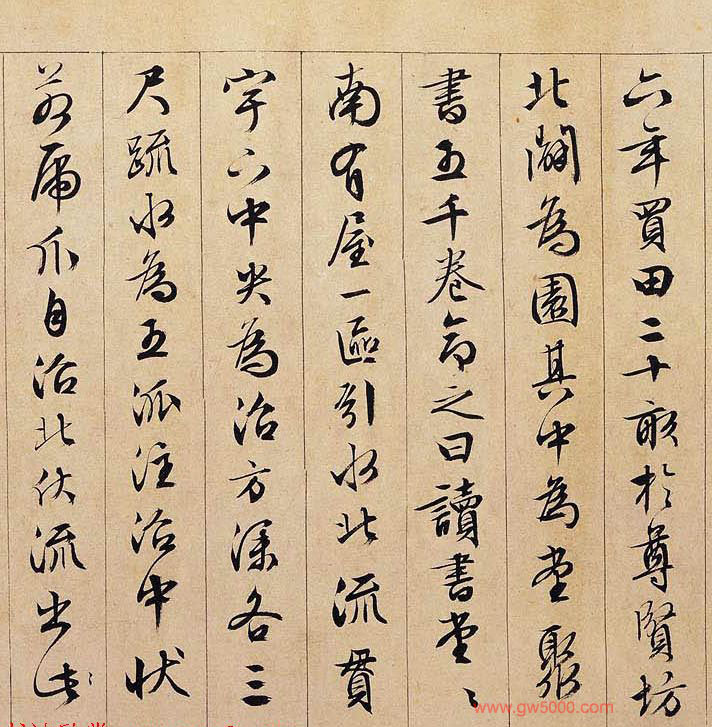 六年買田二十畝於尊賢坊
北闢為園其中為堂聚
書五千卷命之曰讀書堂〻
南有屋一區引水北流貫
宇下中央為沼方深各三
尺疏水為五派注沼中状
若虎爪自沼北伏流出此〻
www.gw5000.com